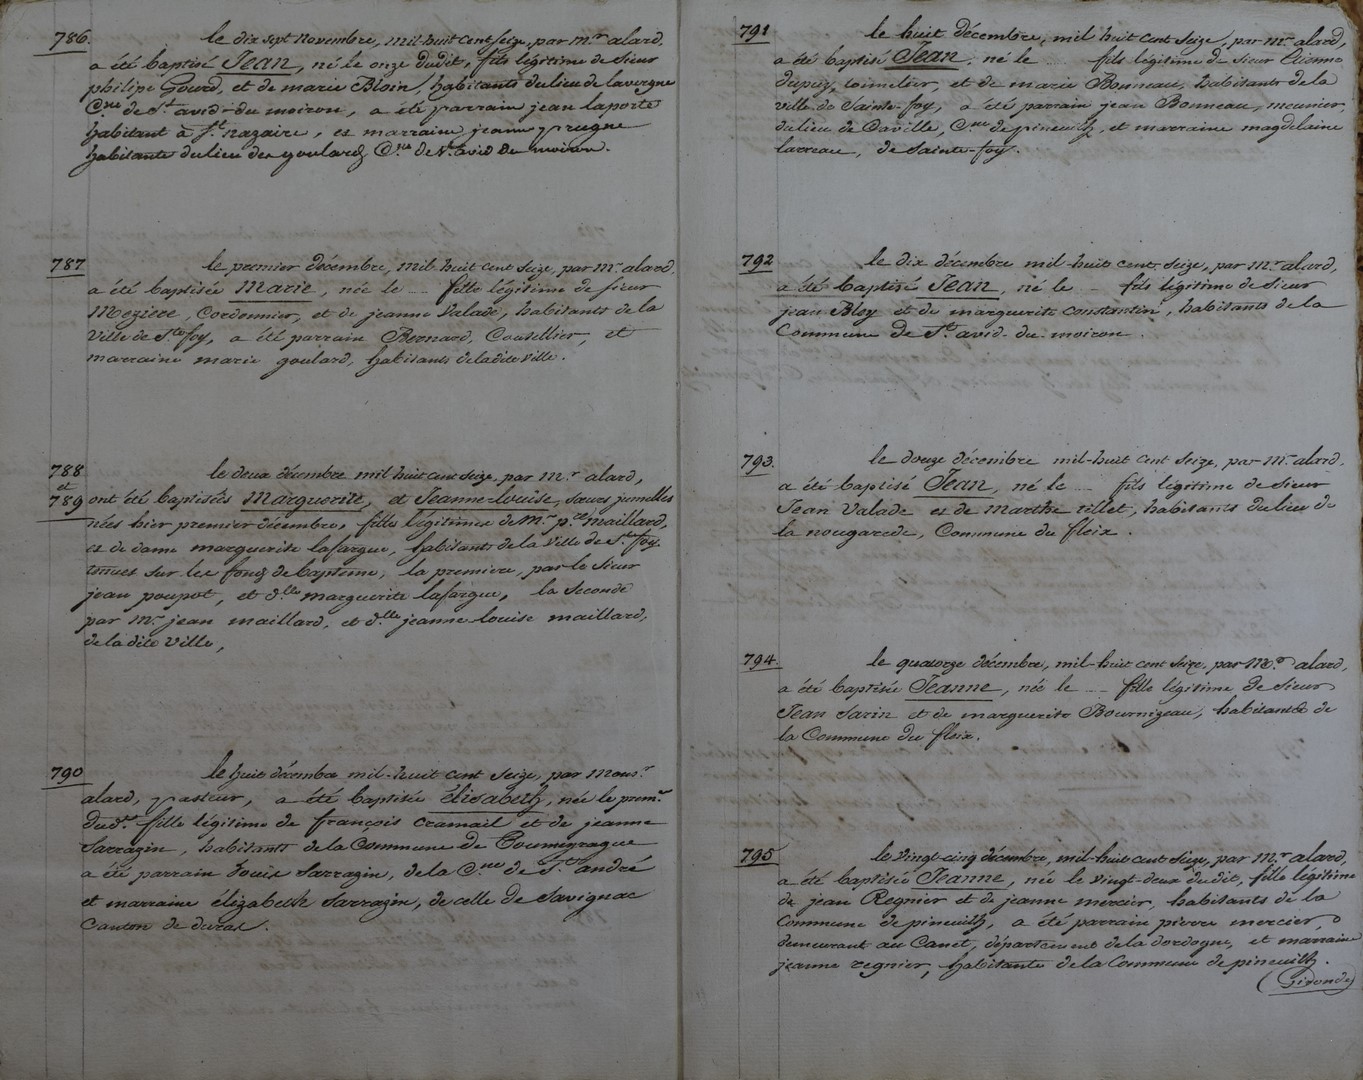 786.
le dix sept Novembre, mil-huit cent seize, par mr. alard,
a été baptisé Jean, né le onze dudit, fils légitime de sieur
philipe Gourd, et de marie Bloin, habitants du lieu de lavergne
Cne. de St. avid-du moiron, a été parrain jean laporte
habitant à St. nazaire, et marraine jeanne prugne
habitante du lieu des goulards Cne. de St. avid du moiron.
787
le premier décembre, mil-huit cent seize, par mr. alard,
a été baptisée Marie, née le .... fille légitime de sieur
Mezière, Cordonnier, et de jeanne Valade, habitants de la
Ville de Ste. foy, a été parrain Bernard, Coutellier, et
marraine marie goulard, habitants de la dite Ville.
788
et
789
le deux décembre mil-huit cent seize, par mr. alard,
ont été baptisées Marguerite, et Jeanne-Louise, sœurs jumelles
nées hier premier décembre, filles légitimes de Mr. pre. maillard,
et de dame marguerite lafargue, habitants de la ville de Ste. foy.
tenues sur les fonds de baptême, la première, par le sieur
jean poupot, et dlle. marguerite lafargue, la seconde
par Mr. jean maillard, et dlle. jeanne-louise maillard,
de la dite Ville,
790
le huit décembre mil-huit cent seize, par Monsr.
alard, pasteur, a été baptisée élisabeth, née le premr.
dudt. fille légitime de françois cramail et de jeanne
Sarrazin, habitants de la Commune de
a été parrain Louis Sarrazin, de la Cne. de St. andré
et marraine élizabeth Sarrazin, de celle de Savignac
Canton de duras.
791
le huit décembre, mil-huit cent seize, par mr. alard,
a été baptisé Jean, né le .... fils légitime de sieur Etienne
dupuy, tonnelier, et de marie Bonneau, habitants de la
ville de Sainte-foy, a été parrain jean Bonneau, meunier,
du lieu de Caville, Cne. de pineuilh, et marraine magdelaine
larreau, de Sainte-foy.
792
le dix décembre mil-huit cent seize, par Mr. alard,
a été baptisé Jean, né le ... fils légitime de sieur
jean Bloy et de marguerite constantin, habitants de la
Commune de St. avid-du-moiron.
793.
le douze décembre mil-huit cent seize, par Mr. alard,
a été baptisé Jean, né le .... fils légitime de sieur
Jean Valade et de Marthe rillet, habitants du lieu de
la nougarede, Commune du fleix.
794.
le quatorze décembre, mil-huit cent seize, par Mr. alard,
a été baptisée Jeanne, née le .... fille légitime de sieur
Jean Sarin et de marguerite Bournizeau, habitants de
la Commune du fleix.
795
le vingt-cinq décembre, mil-huit cent seize, par Mr. alard,
a été baptisée Jeanne, née le vingt-deux dudit, fille légitime
de jean Regnier et de jeanne mercier, habitants de la
Commune de pineuilh, a été parrain pierre mercier,
demeurant au Canet, département de la dordogne, et marraine
jeanne regnier, habitante de la Commune de pineuilh.
(Gironde)